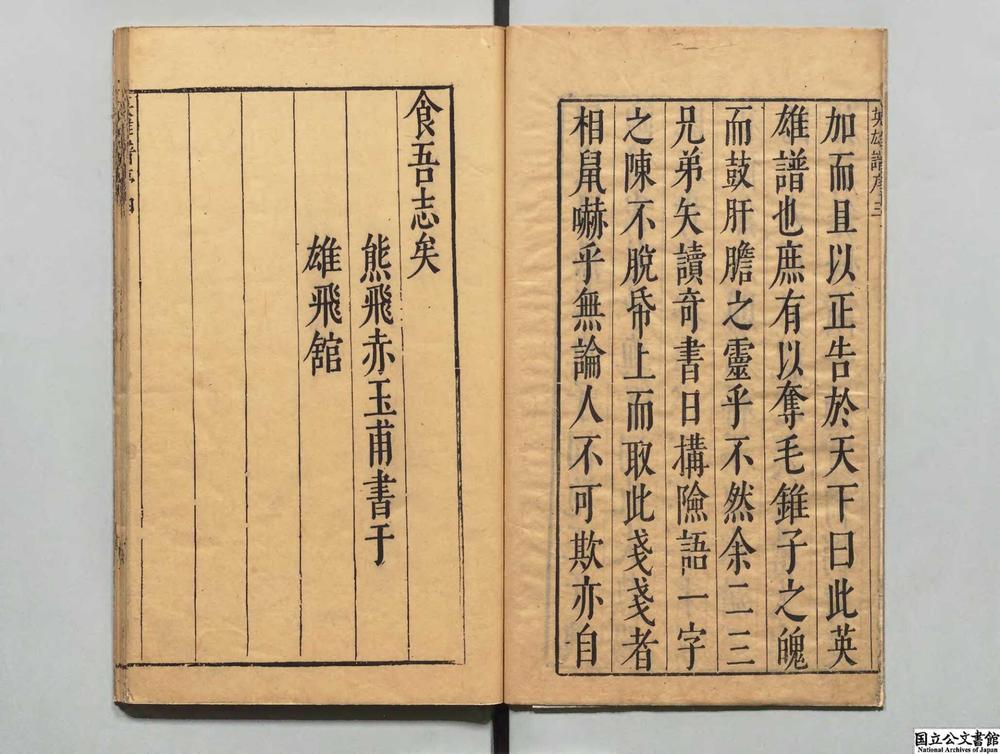 英雄譜序三
加而且以正告於天下曰此英
雄譜也庶有以奪毛錐子之魄
而鼓肝膽之靈乎不然余二三
兄弟矢讀奇書日搆險語一字
之陳不脫帋上而取此戔戔者
相鼠嚇乎無論人不可欺亦自
食吾志矣
熊飛赤玉甫書于
雄飛舘
英雄譜序四
国立公文書館
National Archives of Japan